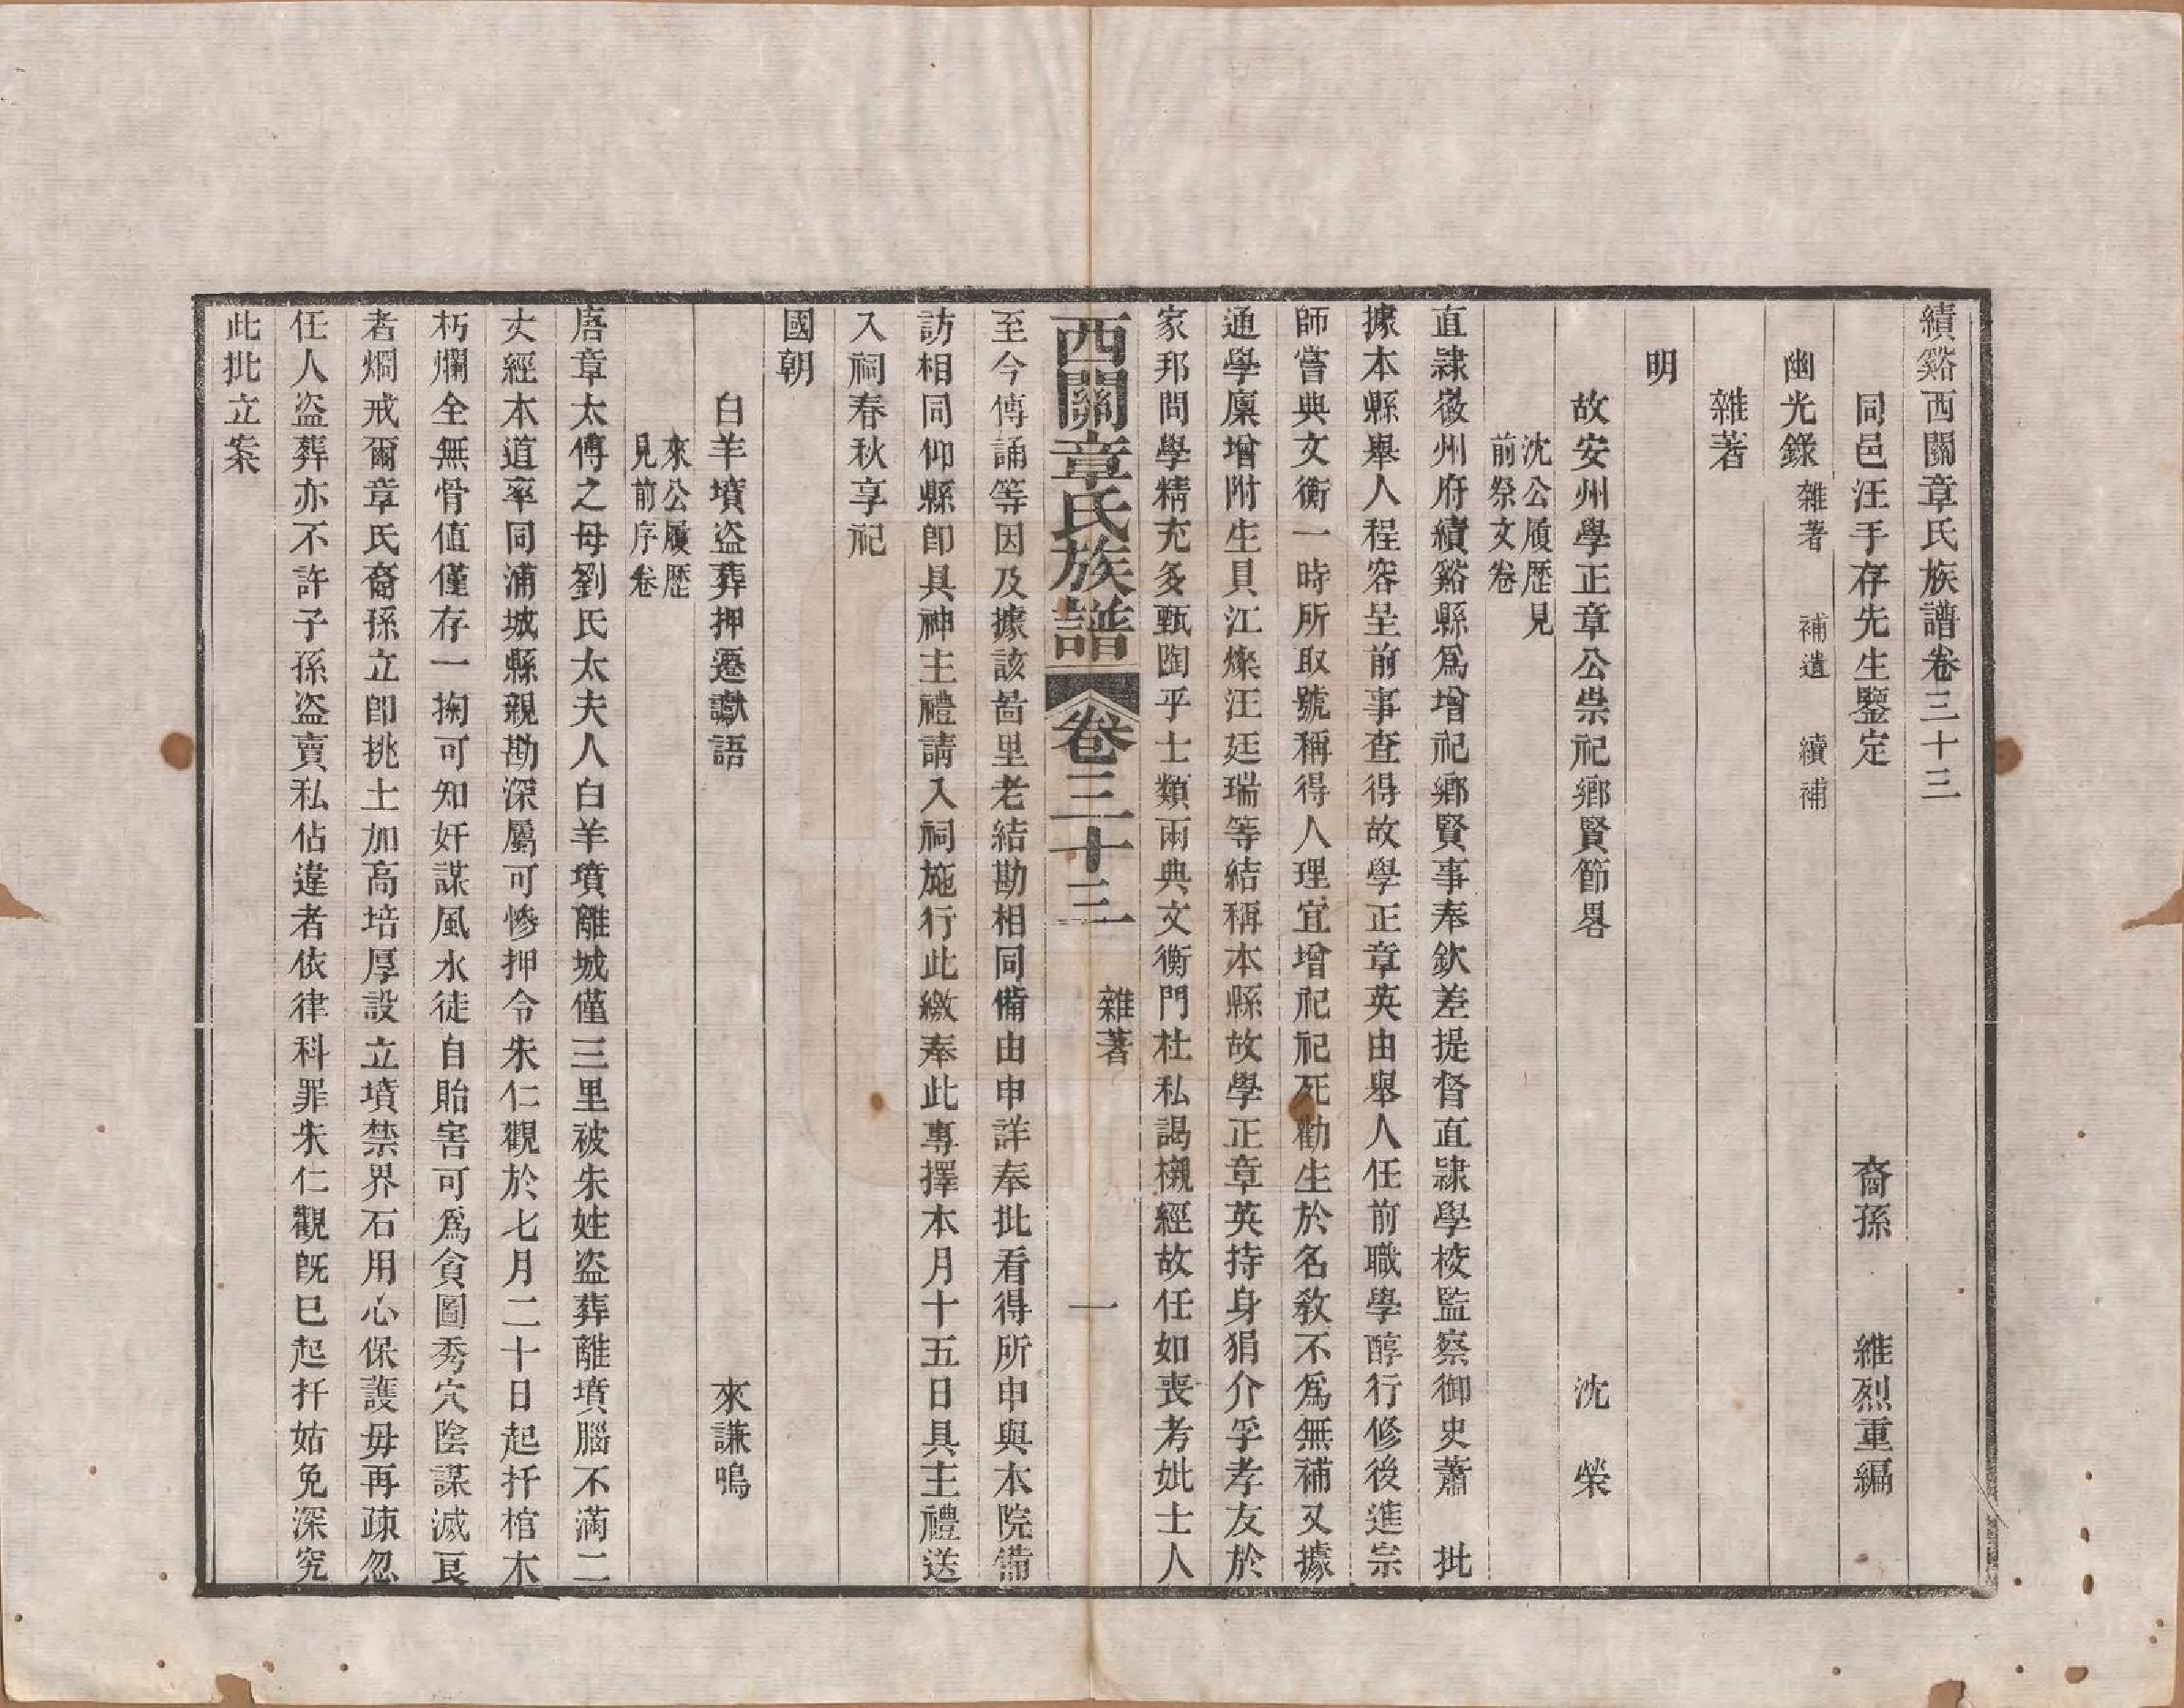 績谿西關章氏族譜卷三十三
同邑汪手存先生鑒定 裔孫 維烈重編
幽光錄 雜著 補遺 續補
雜著
明
故安州學正章公崇祀鄉賢節畧 沈 榮
沈公履歷見
前祭文卷
直隷徽州府績谿縣爲增祀鄉賢事奉欽差提督直隷學校監察御史蕭 批
據本縣舉人程容呈前事查得故學正章英由舉人任前職學醇行修後進宗
師嘗典文衡一時所取號稱得人理宜增祀祀死勸生於名敎不爲無補又據
通學廩增附生員江燦汪廷瑞等結稱本縣故學正章英持身狷介孚孝友於
家邦問學精充多甄陶乎士類兩典文衡門杜私謁櫬經故任如喪考妣士人
西關章氏族譜 卷三十三 雜著 一
至今傳誦等因及據該啚里老結勘相同備由申詳奉批看得所申與本院備
訪相同仰縣卽具神主禮請入祠施行此繳奉此專擇本月十五日具主禮送
入祠春秋享祀
國朝
白羊墳盜葬押遷讞語 來謙鳴
來公履歷
見前序卷
唐章太傅之母劉氏太夫人白羊墳離城僅三里被朱姓盜葬離墳腦不滿二
丈經本道率同浦城縣親勘深屬可慘押令朱仁觀於七月二十日起扦棺木
朽爛全無骨值僅存一掬可知奸謀風水徒自貽害可爲貪圖秀穴陰謀滅良
者烱戒爾章氏裔孫立卽挑土加高培厚設立墳禁界石用心保護毋再疎忽
任人盜葬亦不許子孫盜賣私佔違者依律科罪朱仁觀旣已起扦姑免深究
此批立案